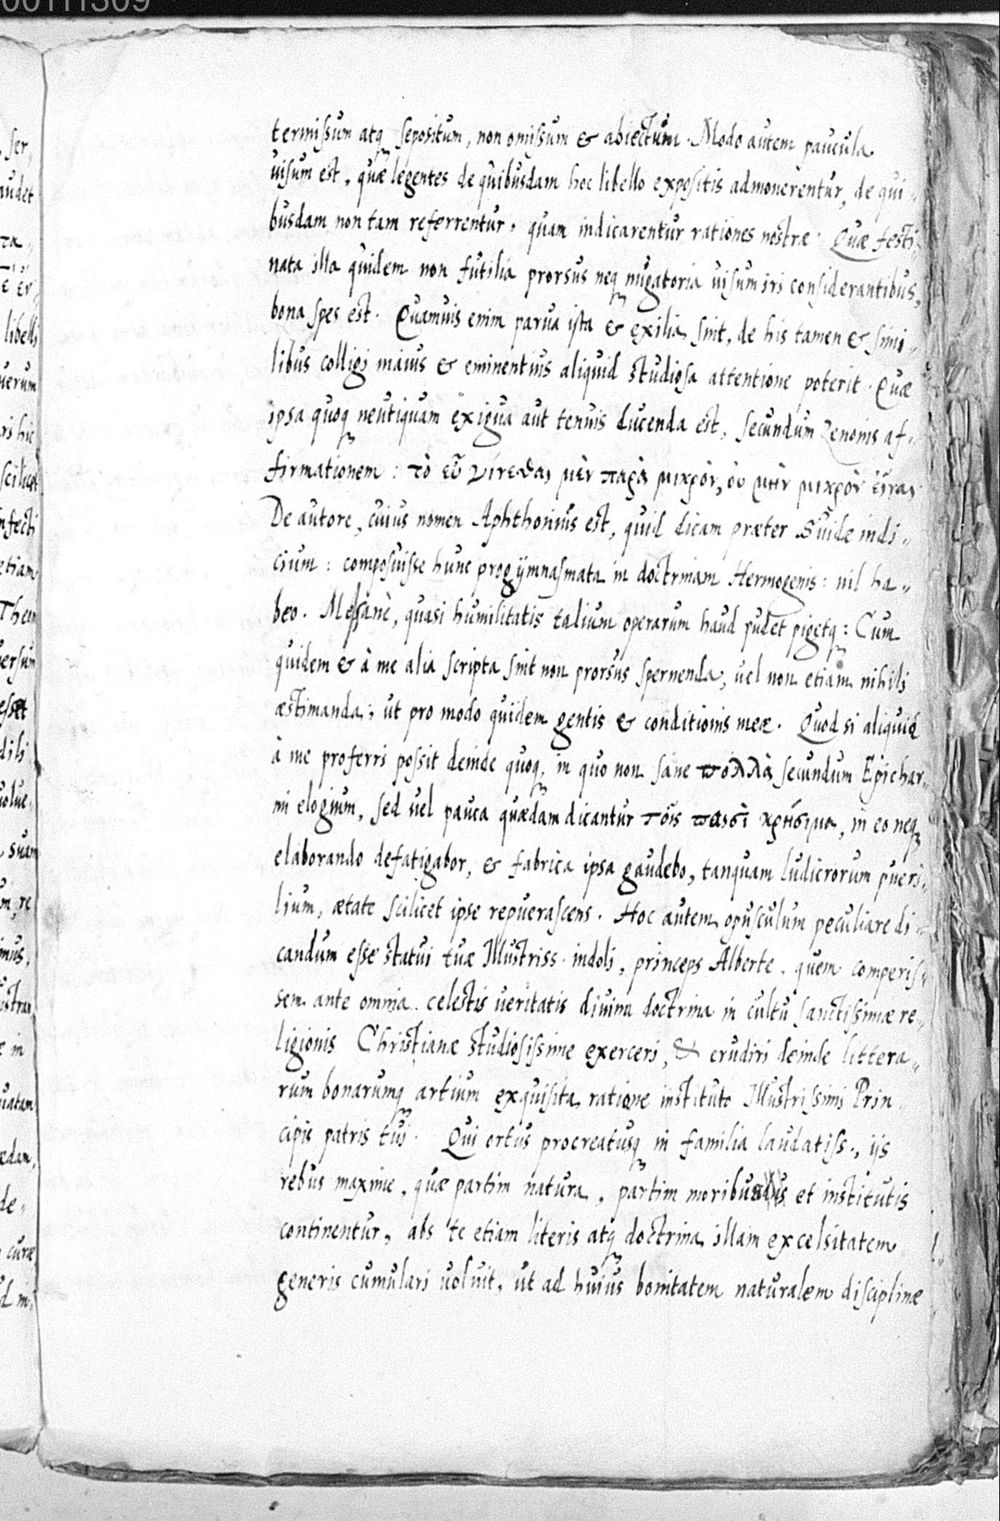 termissum atq sepositum, non omissum & abiectum. Modo autem paucula
uisum est, quæ legentes de quibusdam hoc libello expositis admonerentur, de qui-
busdam non tam referrentur, quam indicarentur rationes nostræ. Quæ festi-
nata illa quidem non futilia prorsus neq nugatoria uisum iri considerantibus,
bona spes est. Quamuis enim parua ista & exilia sint, de his tamen & simi-
libus colligi maius & eminentius aliquid studiosa attentione poterit. Quæ
ipsa quoq neutiquam exigua aut tenuis ducenda est, secundum Zenonis af-
firmationem: τὸ εὖ γίνεσθαι μὲν παρὰ μικρὸν, οὐ μὴν μικρὸν εἶναι
De autore, cuius nomen Aphthonius est, quid dicam præter Suidæ indi-
cium: composuisse hunc progymnasmata in doctrinam Hermogenis: nil ha-
beo. Me sanè, quasi humilitatis talium operarum haud pudet pigetq: Cum
quidem & à me alia scripta sint non prorsus spernenda, uel non etiam nihili
æstimanda, ut pro modo quidem gentis & conditionis meæ. Quod si aliquid
à me proferri possit deinde quoq, in quo non sane πολλὰ secundum Epichar-
mi elogium, sed uel pauca quædam dicantur τοῖς πᾶσι χρήσιμα, in eo neq
elaborando defatigabor, & fabrica ipsa gaudebo, tanquam ludicrorum pueri-
lium, ætate scilicet ipse repuerascens. Hoc autem opusculum peculiare di-
candum esse statui tuæ Illustriss. indoli, princeps Alberte, quem comperis-
sem ante omnia celestis ueritatis diuina doctrina in cultu sanctissimæ re-
ligionis Christianæ studiosissime exerceri, & erudiri deinde littera-
rum bonarumq artium exquisita ratione instituto Illustrissimi Prin
cipis patris tui. Qui ortus procreatusq in familia laudatiss., iis
rebus maxime, quæ partim natura, partim moribus et institutis
continentur, abs te etiam literis atq doctrina illam excelsitatem
generis cumulari uoluit, ut ad huius bonitatem naturalem disciplinæ